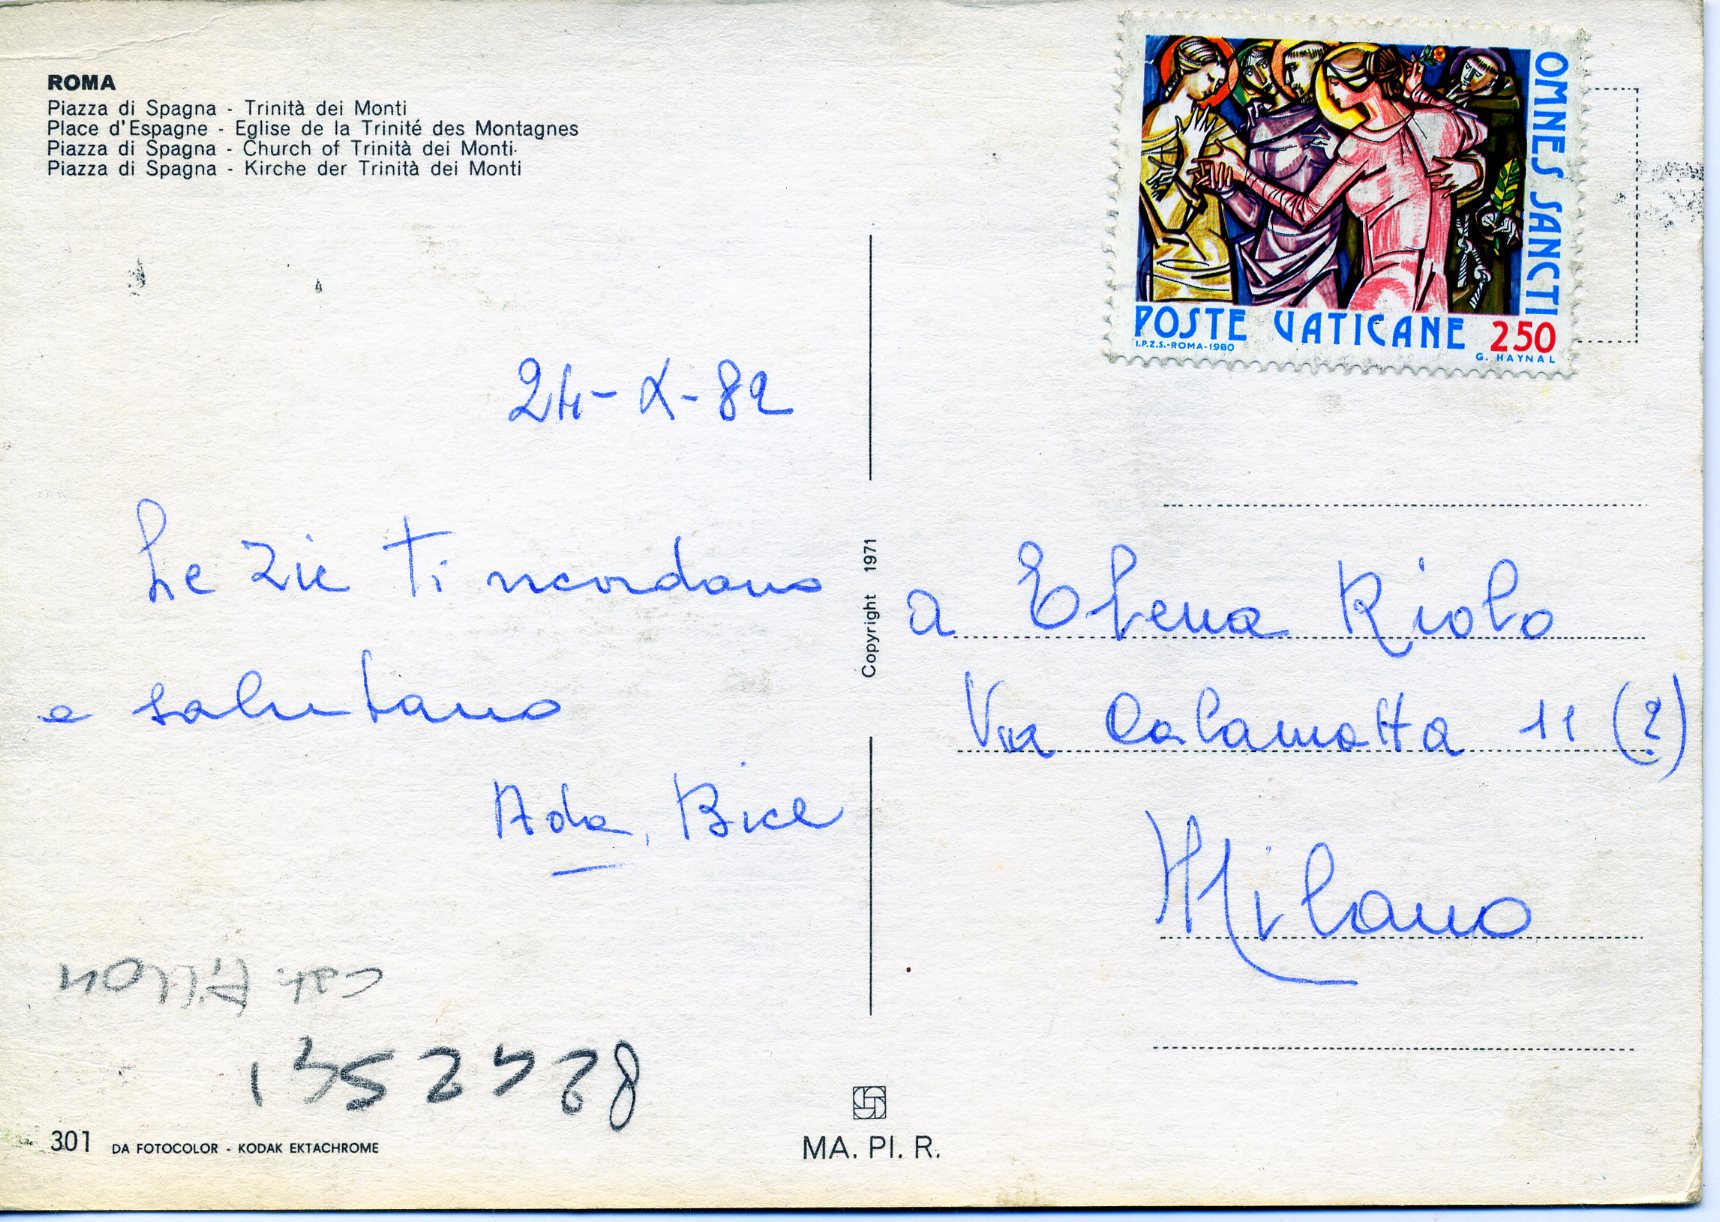 ROMA
Piazza di Spagna - Trinità dei Monti
Place d'Espagne - Eglise de la Trinité des Montagnes
Piazza di Spagna - Church of Trinità dei Monti
Piazza di Spagna - Kirche der Trinità dei Monti
OMNES SANCTI
POSTE VATICANE 250
I.P.Z.S.-ROMA-1980
G. HAYNAL
24-X-82
Le zie ti ricordano
e salutano
Ada, Bice
Copyright 1971
a Elena Riolo
Via Calamatta 11 (?)
Milano
301 DA FOTOCOLOR - KODAK EKTACHROME
MA. PI. R.